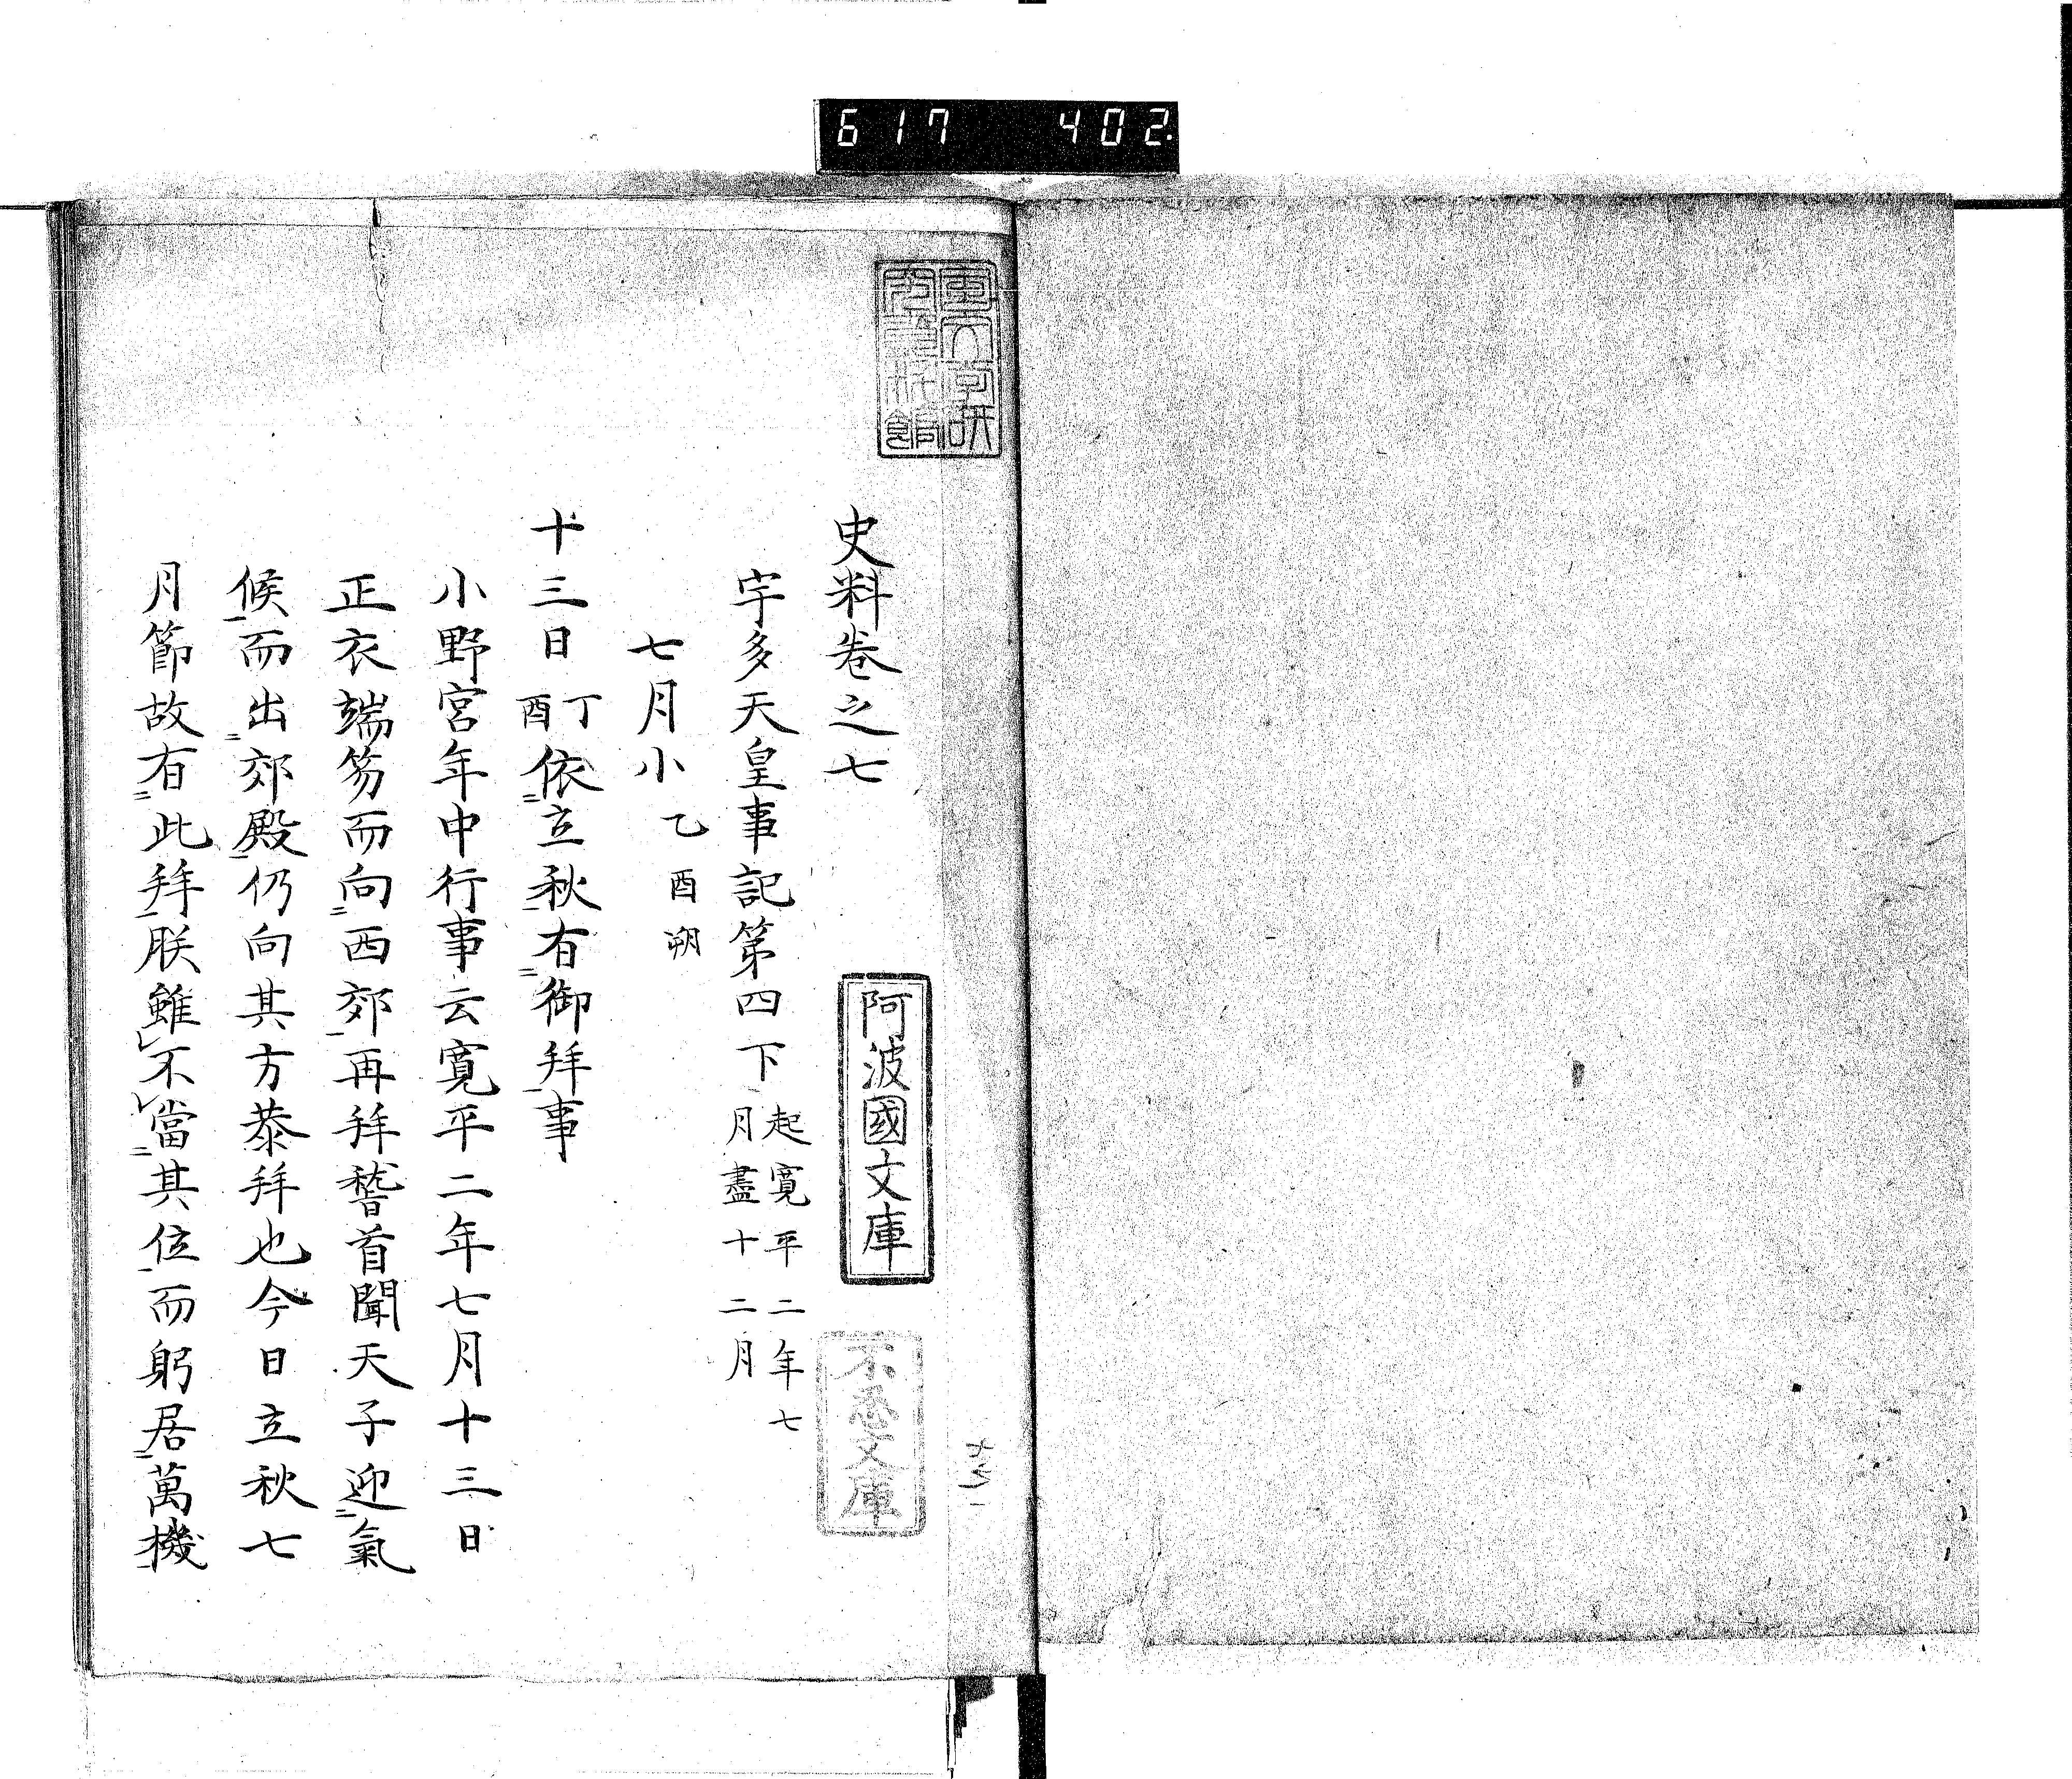 617 402
史料卷之七
阿波國文庫
不忍文庫
宇多天皇事記第四下 起寛平二年七
月盡十二月
七月小 乙酉朔
十三日 丁酉 依立秋有御拜事
小野宮年中行事云寛平二年七月十三日
正衣端笏而向西郊再拜稽首聞天子迎氣
候而出郊殿仍向其方恭拜也今日立秋七
月節故有此拜朕雖不當其位而躬居萬機